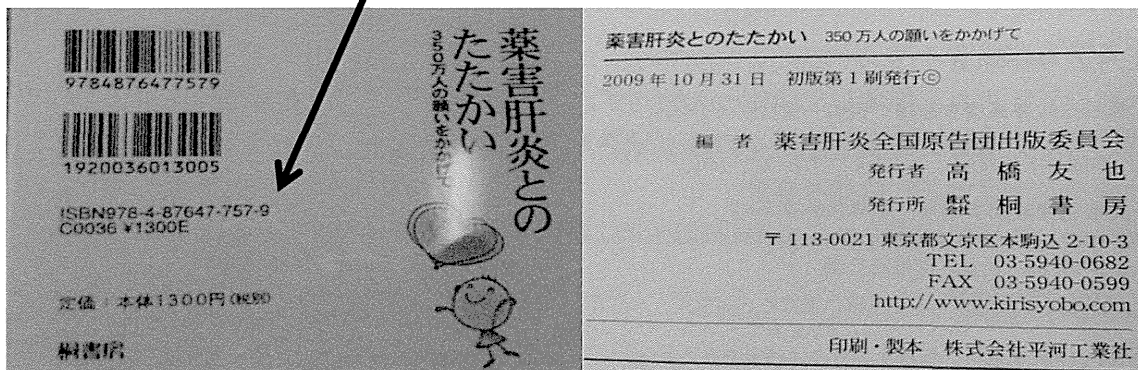 9784876477579
1920036013005
ISBN978-4-87647-757-9
C0036 ¥1300E
定価：本体1300円(税別)
桐書房
薬害肝炎との
たたかい
350万人の願いをかかげて
薬害肝炎とのたたかい 350万人の願いをかかげて
2009年10月31日 初版第1刷発行©
編者 薬害肝炎全国原告団出版委員会
発行者 高橋友也
発行所 ㈱桐書房
〒113-0021 東京都文京区本駒込 2-10-3
TEL 03-5940-0682
FAX 03-5940-0599
http://www.kirisyobo.com
印刷・製本 株式会社平河工業社